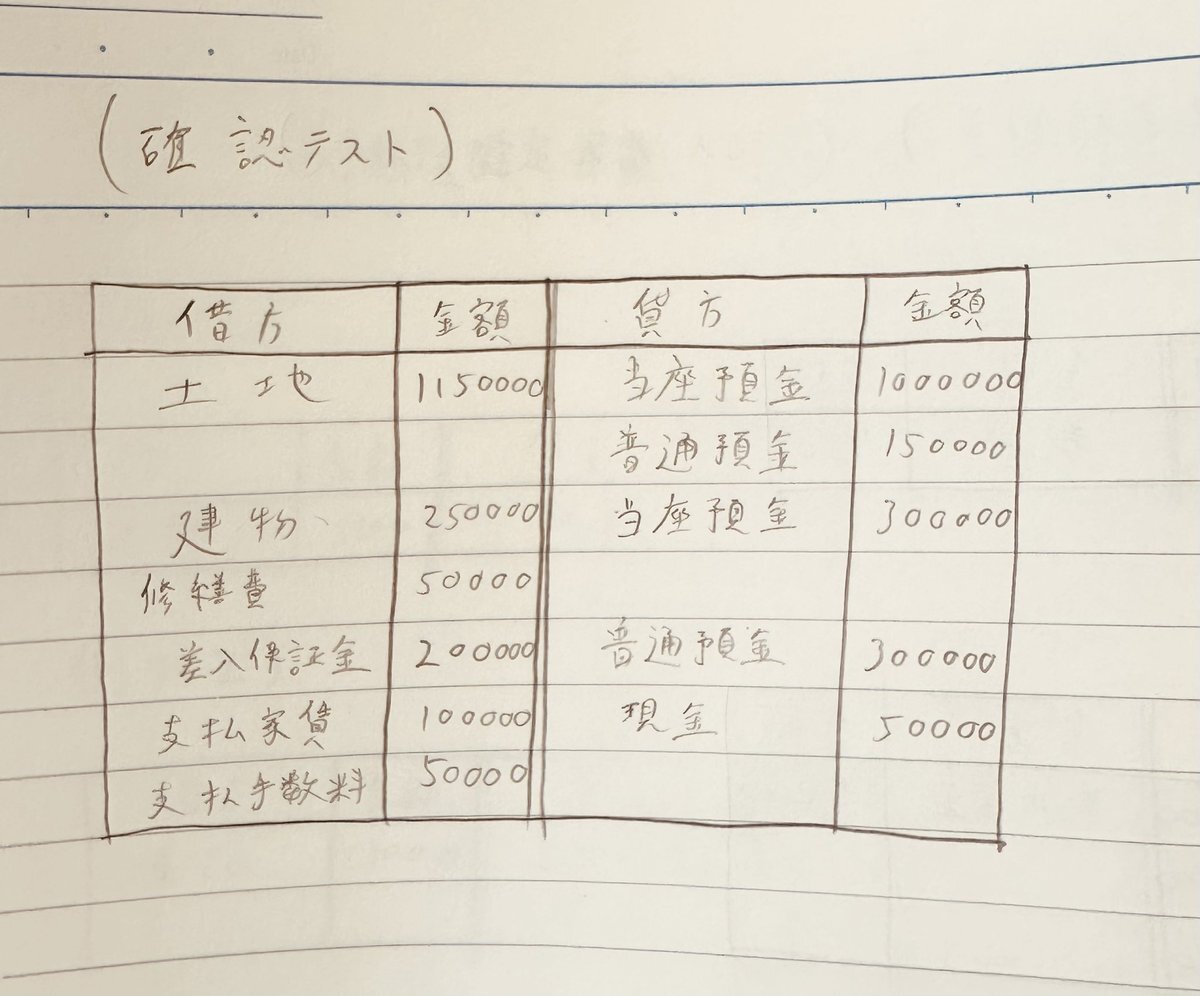 (確認テスト)
借方 金額 貸方 金額
土地 1150000 当座預金 1000000
普通預金 150000
建物 250000 当座預金 300000
修繕費 50000
差入保証金 200000 普通預金 300000
支払家賃 100000 現金 50000
支払手数料 50000